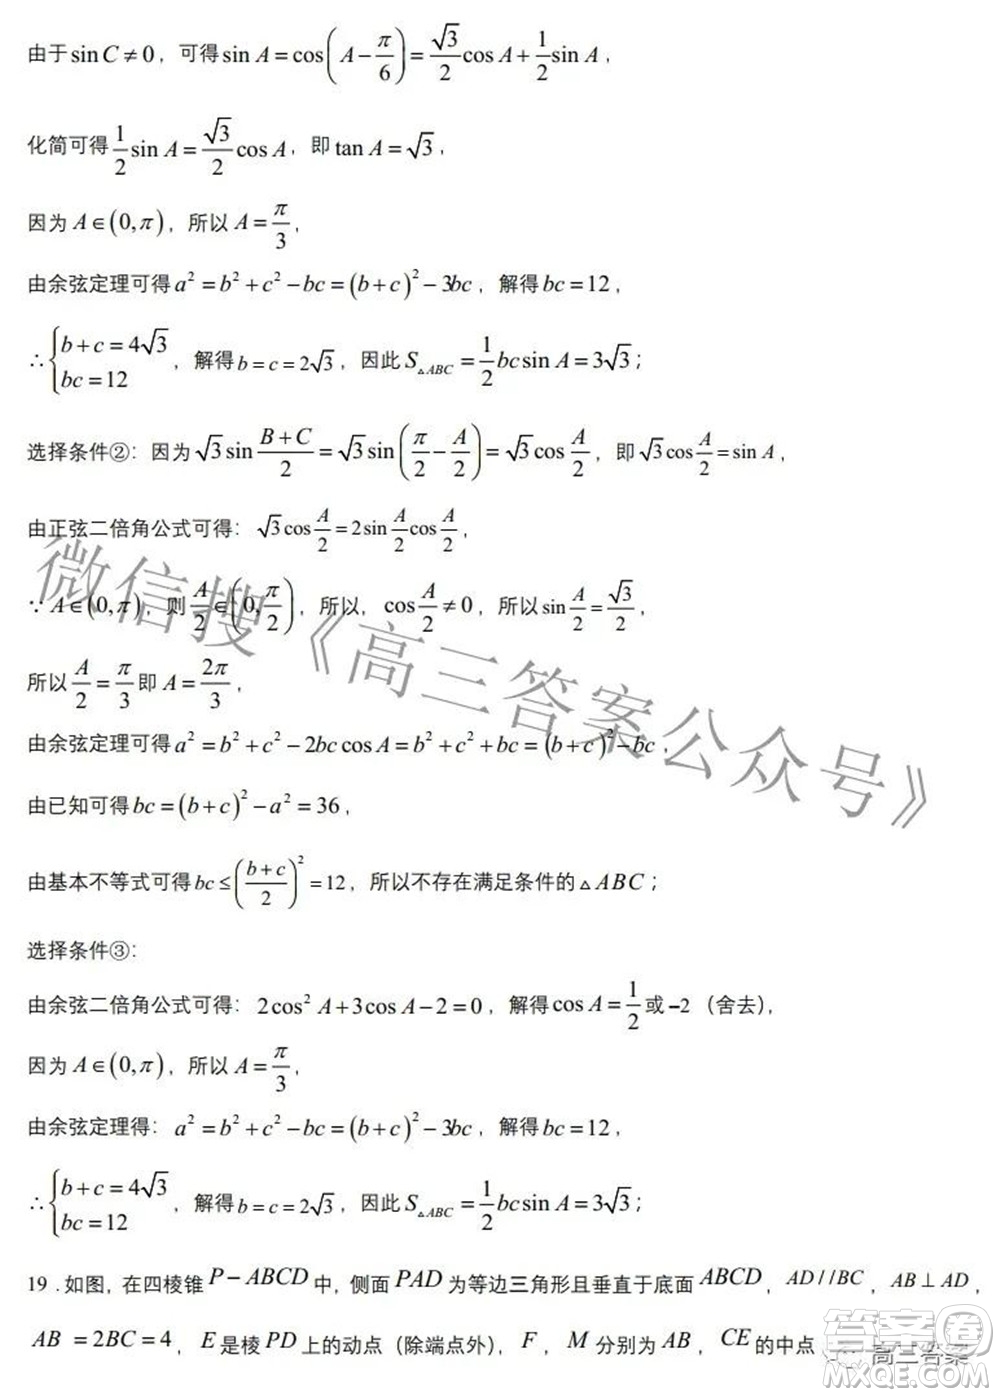 由于 sin C ≠ 0，可得 sin A = cos(A − π/6) = √3/2 cos A + 1/2 sin A，
化简可得 1/2 sin A = √3/2 cos A，即 tan A = √3，
因为 A ∈ (0, π)，所以 A = π/3，
由余弦定理可得 a² = b² + c² − bc = (b + c)² − 3bc，解得 bc = 12，
∴ { b + c = 4√3
bc = 12 ，解得 b = c = 2√3，因此 S△ABC = 1/2 bc sin A = 3√3；
选择条件②：因为 √3 sin (B+C)/2 = √3 sin(π/2 − A/2) = √3 cos A/2，即 √3 cos A/2 = sin A，
由正弦二倍角公式可得：√3 cos A/2 = 2 sin A/2 cos A/2，
∵ A ∈ (0, π)，则 A/2 ∈ (0, π/2)，所以，cos A/2 ≠ 0，所以 sin A/2 = √3/2，
所以 A/2 = π/3 即 A = 2π/3，
由余弦定理可得 a² = b² + c² − 2bc cos A = b² + c² + bc = (b + c)² − bc，
由已知可得 bc = (b + c)² − a² = 36，
由基本不等式可得 bc ≤ ((b+c)/2)² = 12，所以不存在满足条件的 △ABC；
选择条件③：
由余弦二倍角公式可得：2cos² A + 3cos A − 2 = 0，解得 cos A = 1/2 或 −2（舍去），
因为 A ∈ (0, π)，所以 A = π/3，
由余弦定理得：a² = b² + c² − bc = (b + c)² − 3bc，解得 bc = 12，
∴ { b + c = 4√3
bc = 12 ，解得 b = c = 2√3，因此 S△ABC = 1/2 bc sin A = 3√3；
19．如图，在四棱锥 P − ABCD 中，侧面 PAD 为等边三角形且垂直于底面 ABCD，AD//BC，AB ⊥ AD，
AB = 2BC = 4，E 是棱 PD 上的动点（除端点外），F，M 分别为 AB，CE 的中点
微信搜《高三答案公众号》
高三答案
答案圈
MXQE.COM